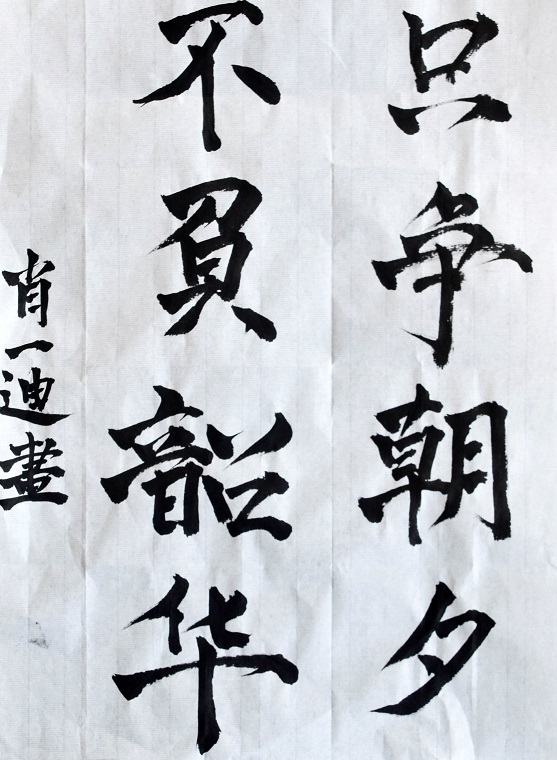 只争朝夕
不負韶华
肖一迪畫